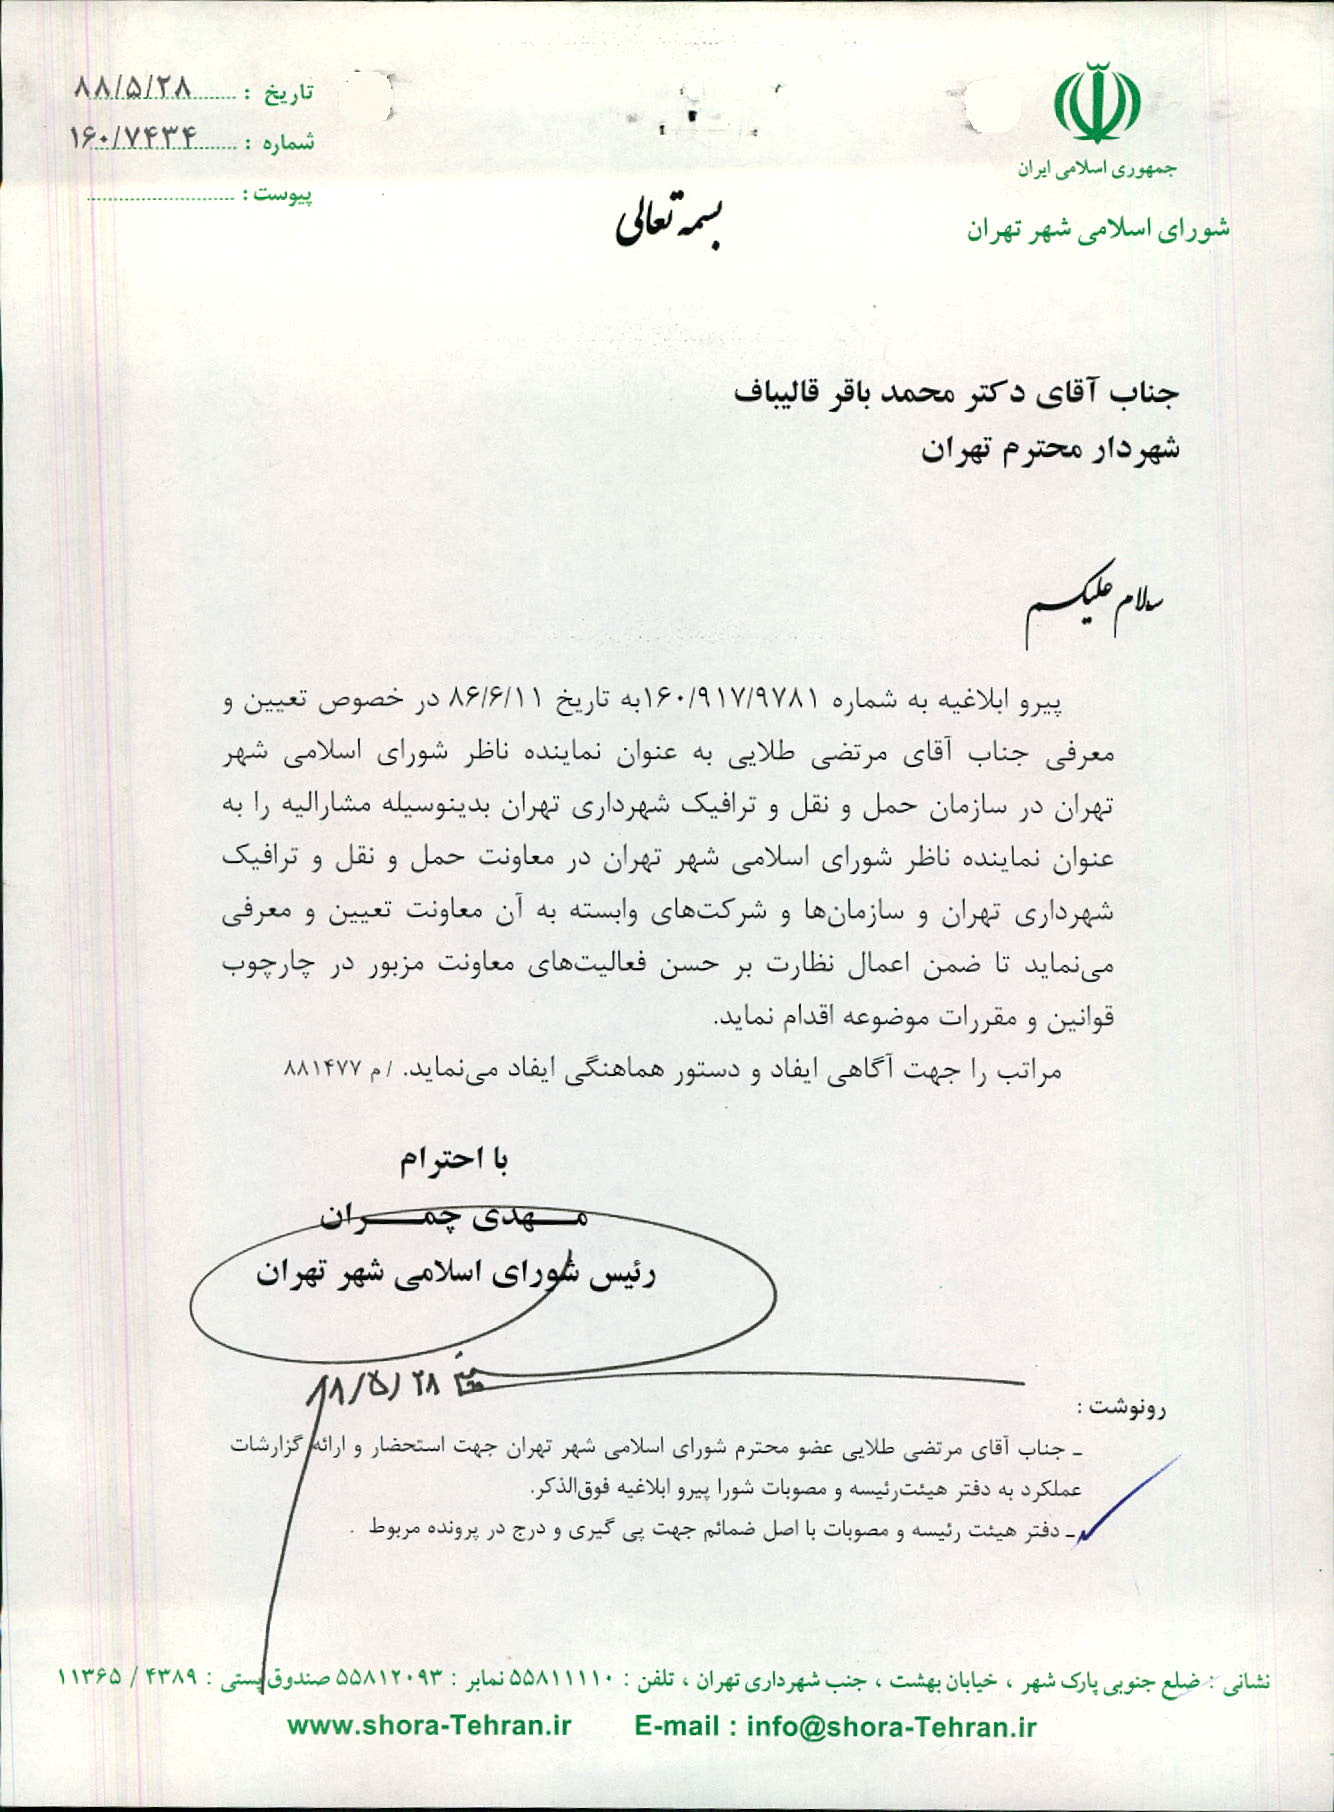 جمهوری اسلامی ایران
شورای اسلامی شهر تهران
تاریخ : ۸۸/۵/۲۸
شماره : ۱۶۰/۷۴۳۴
پیوست :
بسمه تعالی
جناب آقای دکتر محمد باقر قالیباف
شهردار محترم تهران
سلام علیکم
پیرو ابلاغیه به شماره ۱۶۰/۹۱۷/۹۷۸۱به تاریخ ۸۶/۶/۱۱ در خصوص تعیین و
معرفی جناب آقای مرتضی طلایی به عنوان نماینده ناظر شورای اسلامی شهر
تهران در سازمان حمل و نقل و ترافیک شهرداری تهران بدینوسیله مشارالیه را به
عنوان نماینده ناظر شورای اسلامی شهر تهران در معاونت حمل و نقل و ترافیک
شهرداری تهران و سازمان‌ها و شرکت‌های وابسته به آن معاونت تعیین و معرفی
می‌نماید تا ضمن اعمال نظارت بر حسن فعالیت‌های معاونت مزبور در چارچوب
قوانین و مقررات موضوعه اقدام نماید.
مراتب را جهت آگاهی ایفاد و دستور هماهنگی ایفاد می‌نماید. / م ۸۸۱۴۷۷
با احترام
مهدی چمران
رئیس شورای اسلامی شهر تهران
۸۸/۵/۲۸
رونوشت :
ـ جناب آقای مرتضی طلایی عضو محترم شورای اسلامی شهر تهران جهت استحضار و ارائه گزارشات
عملکرد به دفتر هیئت‌رئیسه و مصوبات شورا پیرو ابلاغیه فوق‌الذکر.
ـ دفتر هیئت رئیسه و مصوبات با اصل ضمائم جهت پی گیری و درج در پرونده مربوط .
نشانی : ضلع جنوبی پارک شهر ، خیابان بهشت ، جنب شهرداری تهران ، تلفن : ۵۵۸۱۱۱۱۰ نمابر : ۵۵۸۱۲۰۹۳ صندوق پستی : ۴۳۸۹ / ۱۱۳۶۵
www.shora-Tehran.ir E-mail : info@shora-Tehran.ir